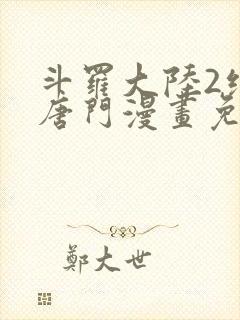 斗羅大陸2
唐門漫畫免
鄭大世